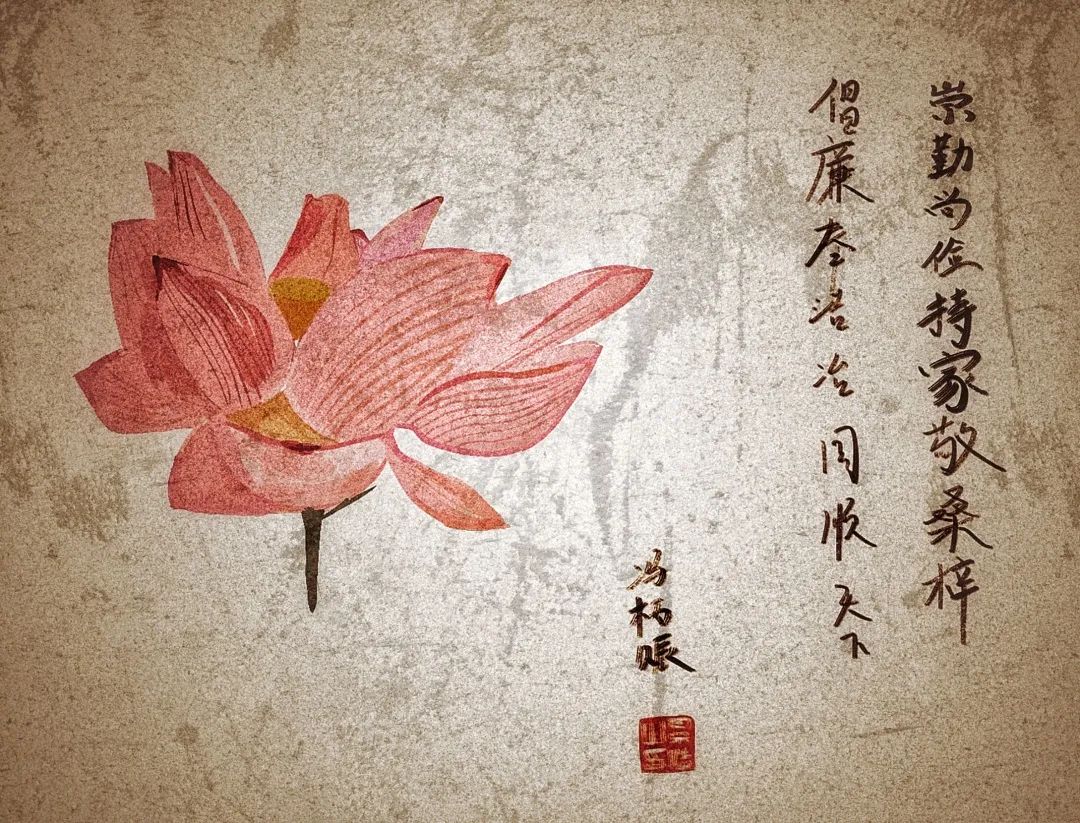 崇勤尚俭持家敬桑梓
倡廉奉洁治国顺天下
冯